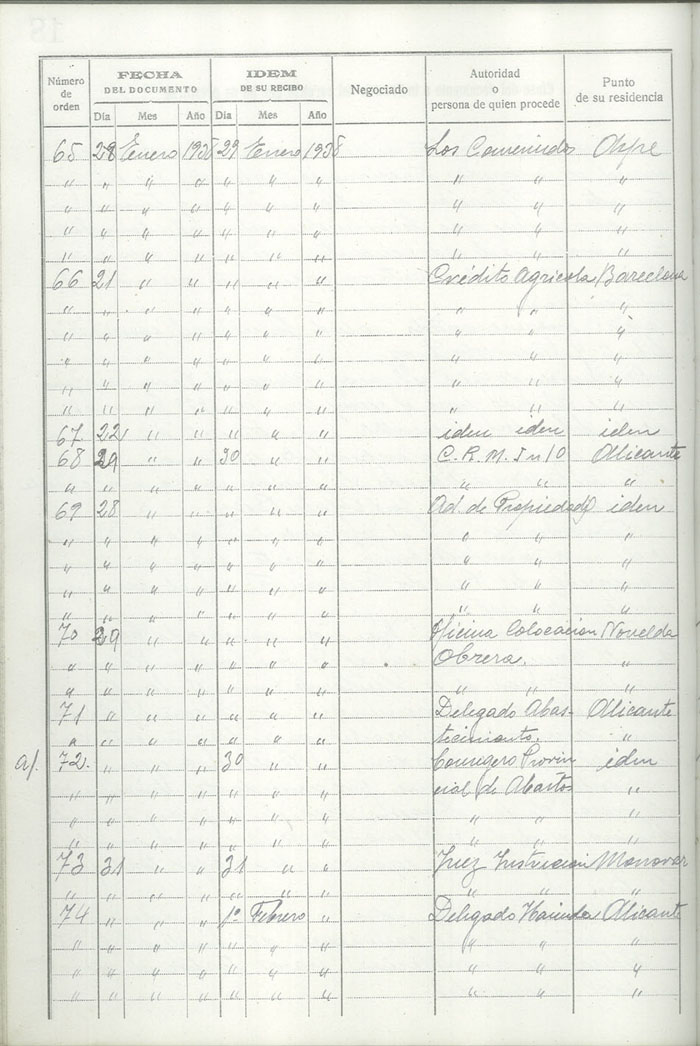 Número de orden | FECHA DEL DOCUMENTO | IDEM DE SU RECIBO | Negociado | Autoridad o persona de quien procede | Punto de su residencia
Día Mes Año Día Mes Año
65 28 Enero 1938 29 Enero 1938 Los Comernidos Aspe
" " " " " " " " " "
" " " " " " " " " "
" " " " " " " " " "
" " " " " " " " " "
66 21 " " " " " Crédito Agricola Barcelona
" " " " " " " " " "
" " " " " " " " " "
" " " " " " " " " "
" " " " " " " " " "
" " " " " " " " " "
67 22 " " " " " iden iden iden
68 29 " " 30 " " C. R. M. I nº 10 Alicante
" " " " " " " " " "
69 28 " " " " " Ad. de Propiedades iden
" " " " " " " " " "
" " " " " " " " " "
" " " " " " " " " "
" " " " " " " " " "
70 29 " " " " " Oficina Colocacion Novelda
" " " " " " " Obrera. "
" " " " " " " " " "
71 " " " " " " Delegado Abas- Alicante
" " " " " " " tecimiento. "
a/. 72. " " " 30 " " Consegero Provin iden
" " " " " " " cial de Abastos "
" " " " " " " " " "
" " " " " " " " " "
73 31 " " 31 " " Juez Instrucion Monovar
" " " " " " " " " "
74 " " " 1º Febrero " Delegado Hacienda Alicante
" " " " " " " " " "
" " " " " " " " " "
" " " " " " " " " "